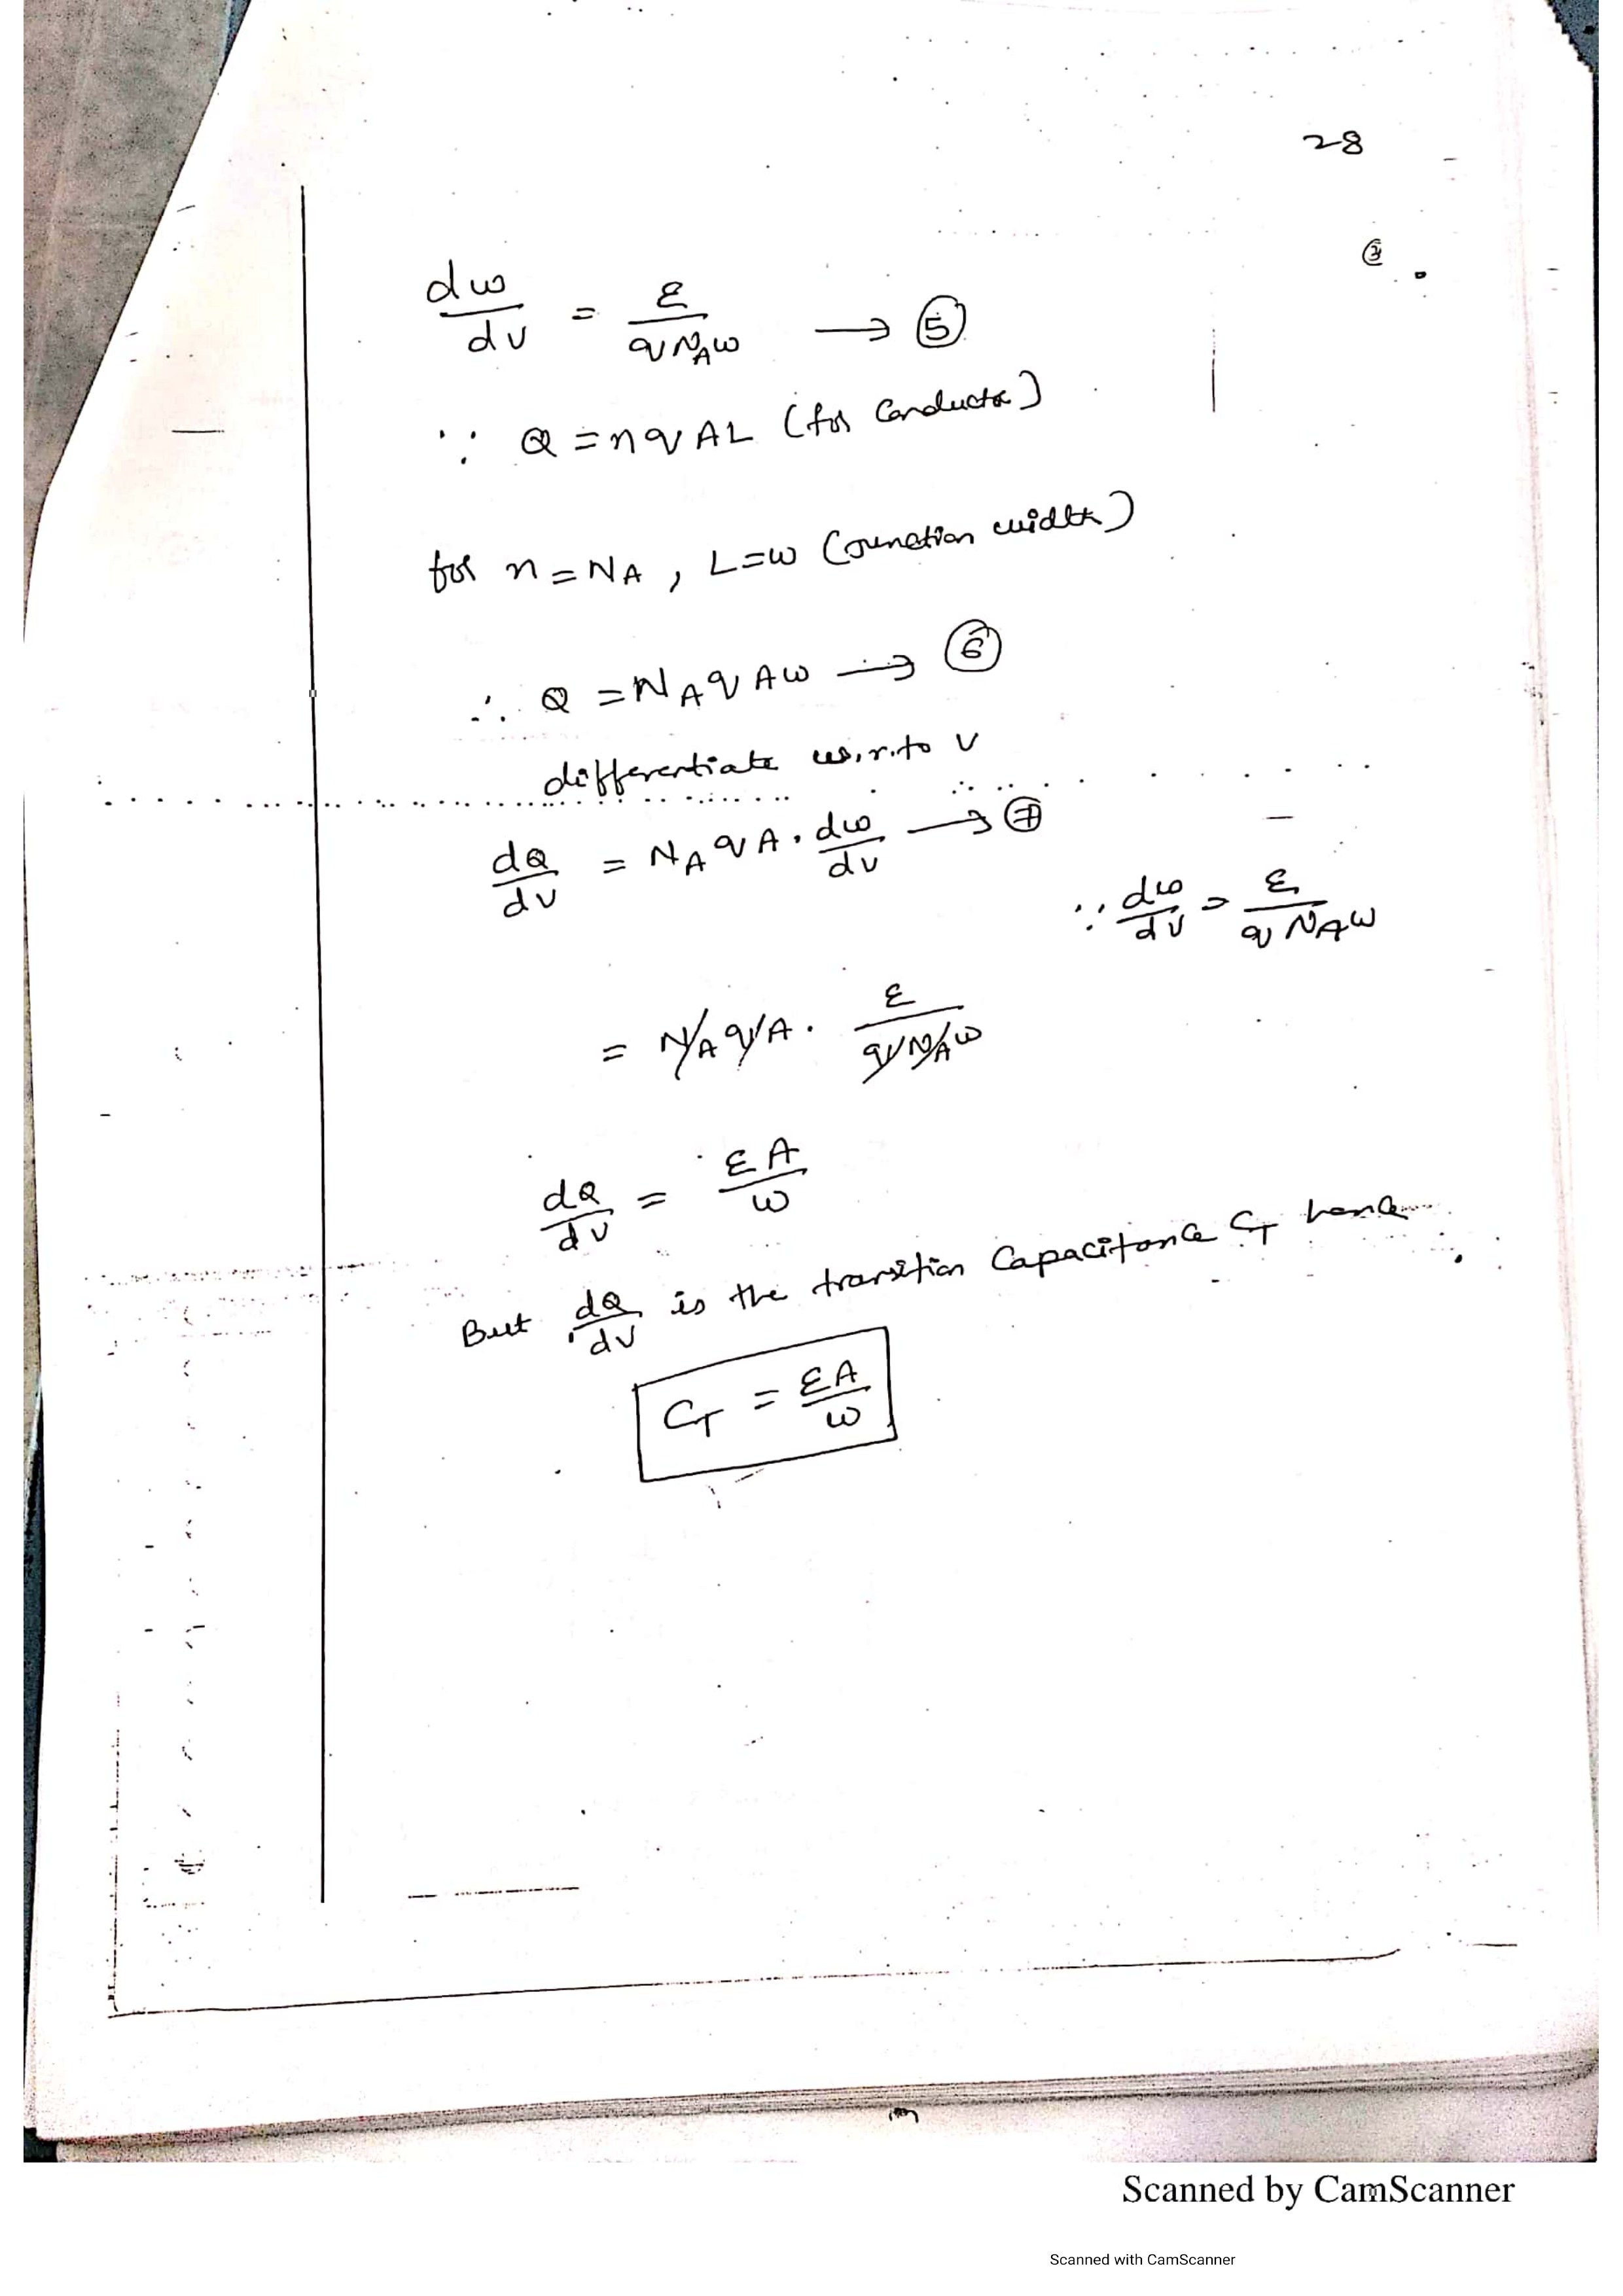 28
dw/dv = ε/(qN_Aw) → ⑤
∵ Q = nqAL (for Conductor)
for n = N_A , L = w (Junction width)
∴ Q = N_A q A w → ⑥
differentiate w.r.to v
dQ/dv = N_A q A . dw/dv → ⑦
∵ dw/dv = ε/(qN_Aw)
= N_A q A . ε/(qN_Aw)
dQ/dv = εA/w
But dQ/dv is the transition Capacitance C_T hence
C_T = εA/w
Scanned by CamScanner
Scanned with CamScanner